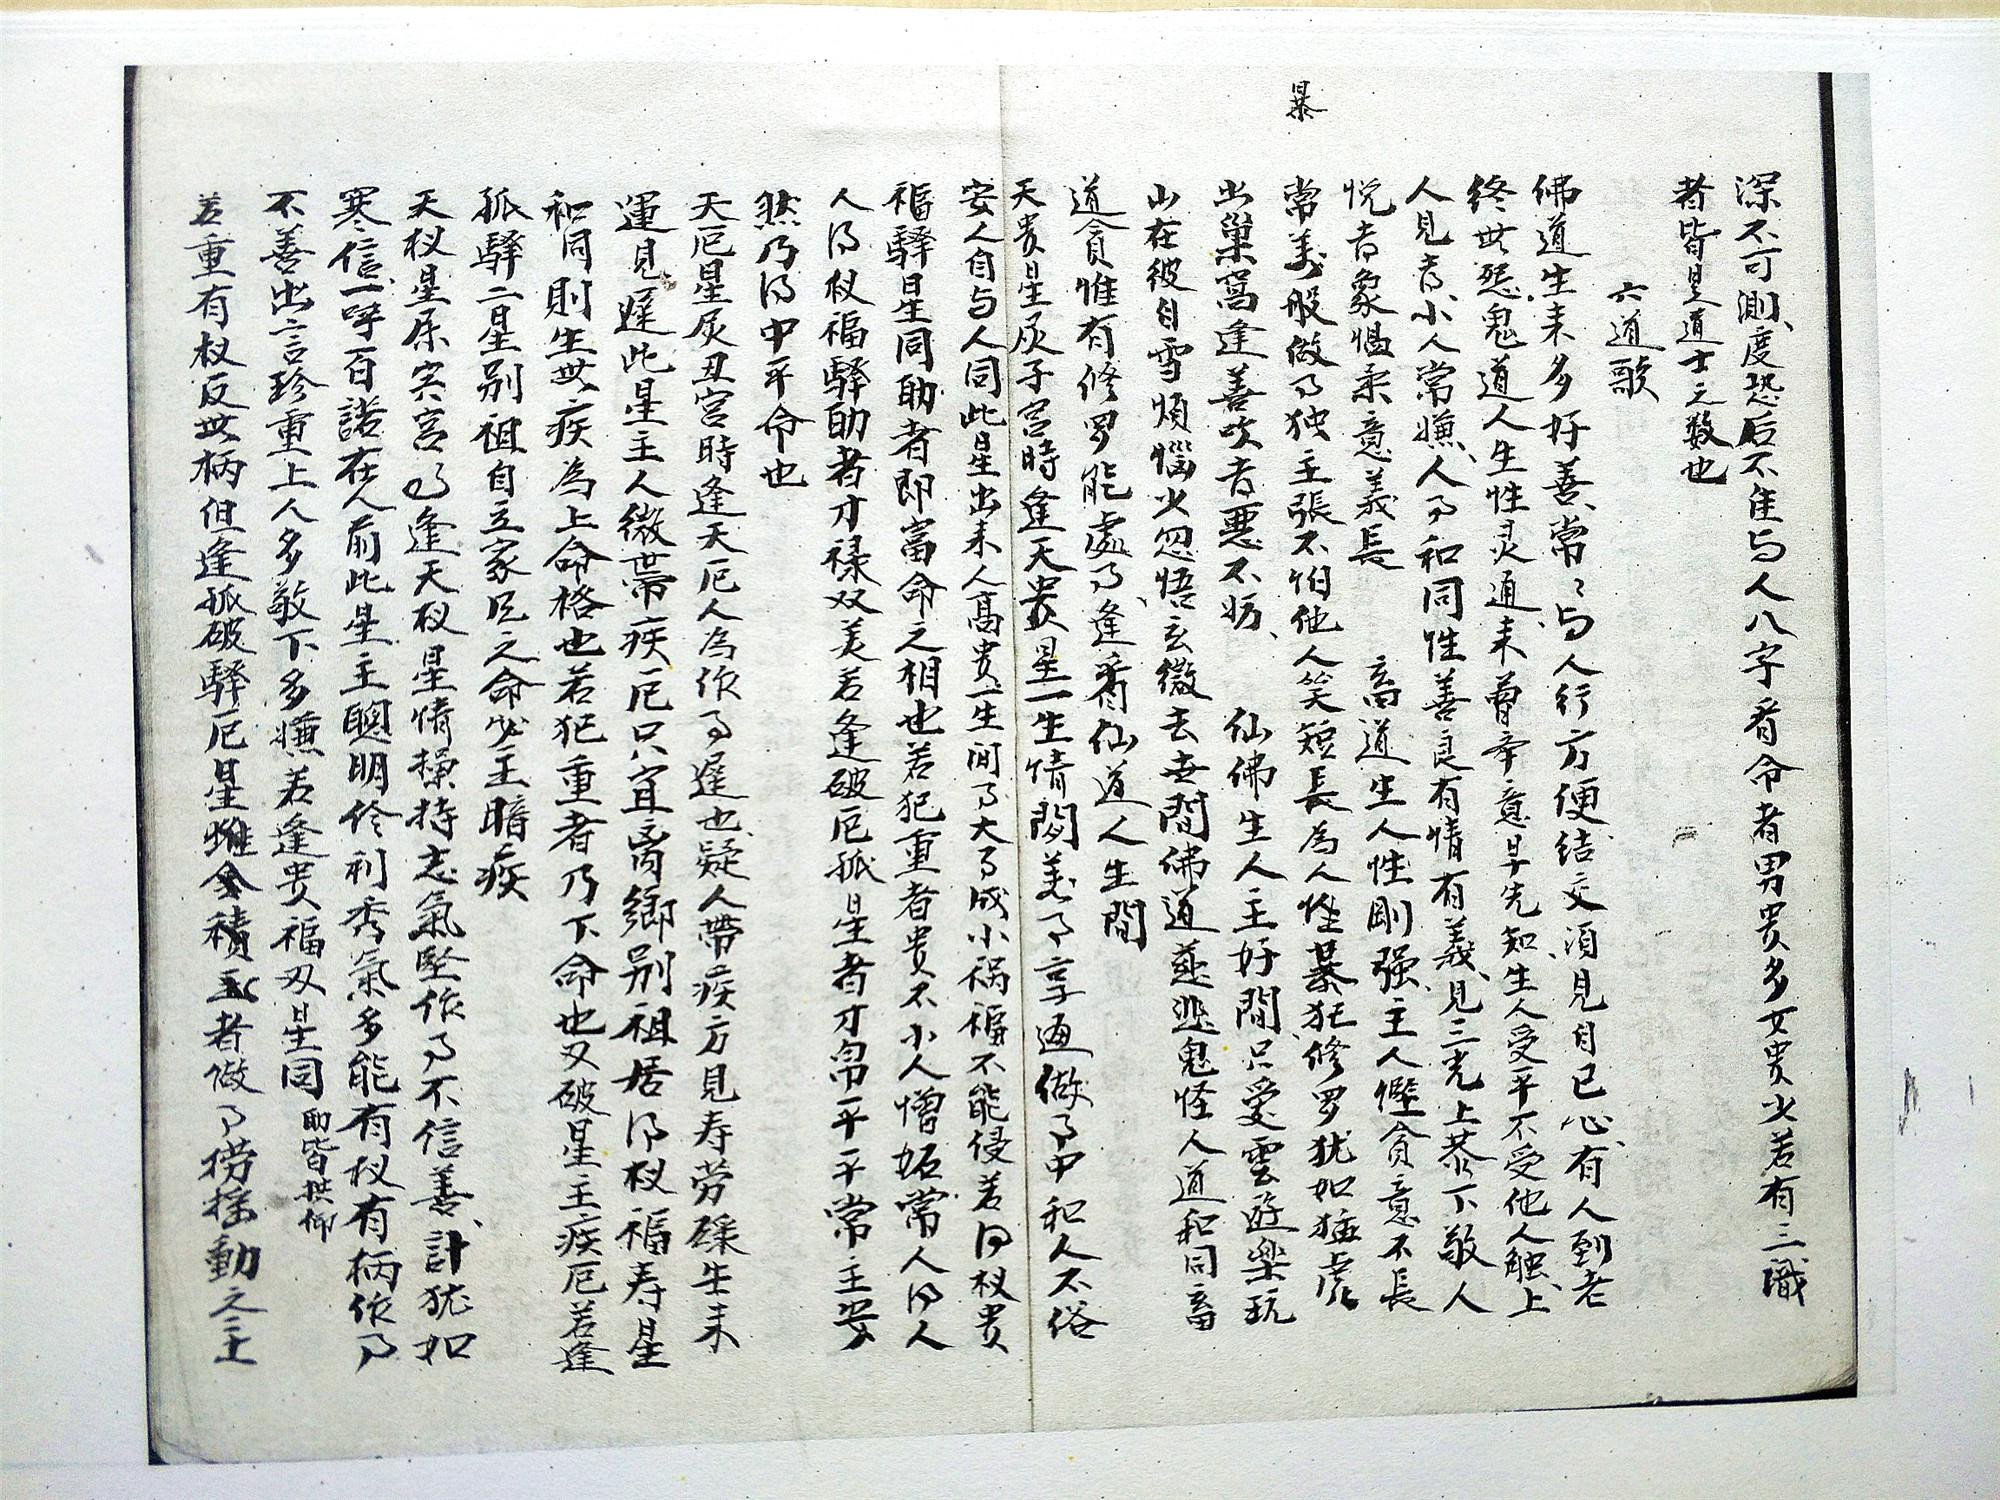 暴
深不可測度恐后不隹与人八字看命者男贵多女贵少若有三識
者皆是道士之数也
六道歌
佛道生来多好善常々与人行方便结交須見自己心有人到老
终世怨鬼道人生性灵通来曾奉意早先知生人受平不受他人触上
人見者小人常嫌人了和同性善良有情有義見三光上恭下敬人
悦者象愠柔意義長 畜道生人性剛强主人慳貪意不長
常美般做了独主張不怕他人笑短長為人性暴狂修罗犹如猛虎
出巢窩逢善吹者悪不妨 仙佛生人主好閒只爱雲遊樂玩
山在彼自雪煩惱少忽悟玄微去世間佛道慈悲鬼怪人道和同畜
道貪惟有修罗能處了逢看仙道人生間
天贵星辰子宫時逢天贵星一生情閑美了享通做了中和人不俗
安人自与人同此星出来人高贵一生间了大了成小祸福不能侵若得权贵
福驛星同助者即富命之相也若犯重者贵不小人憎妬常人得人
人得权福驛助者才禄双美若逢破厄孤星者才帛平平常主安
然乃得中平命也
天厄星辰丑宫時逢天厄人為作了遲也疑人帶疾方見寿劳碌生来
運見遲此星主人微帶疾厄只宜离鄉别祖居得权福寿星
和同則生世疾為上命格也若犯重者乃下命也又破星主疾厄若逢
孤驛二星别祖自立家兄之命必主暗疾
天权星辰寅宫了逢天权星情操持志氣堅作了不信善計犹如
寒信一呼百諾在人前此星主聰明伶利秀氣多能有权有柄作了
不善出言珍重上人多敬下多嫌若逢贵福刃星同助皆拱仰
若重有权反世柄但逢孤破驛厄星惟金積玉者做了撈摇動之主